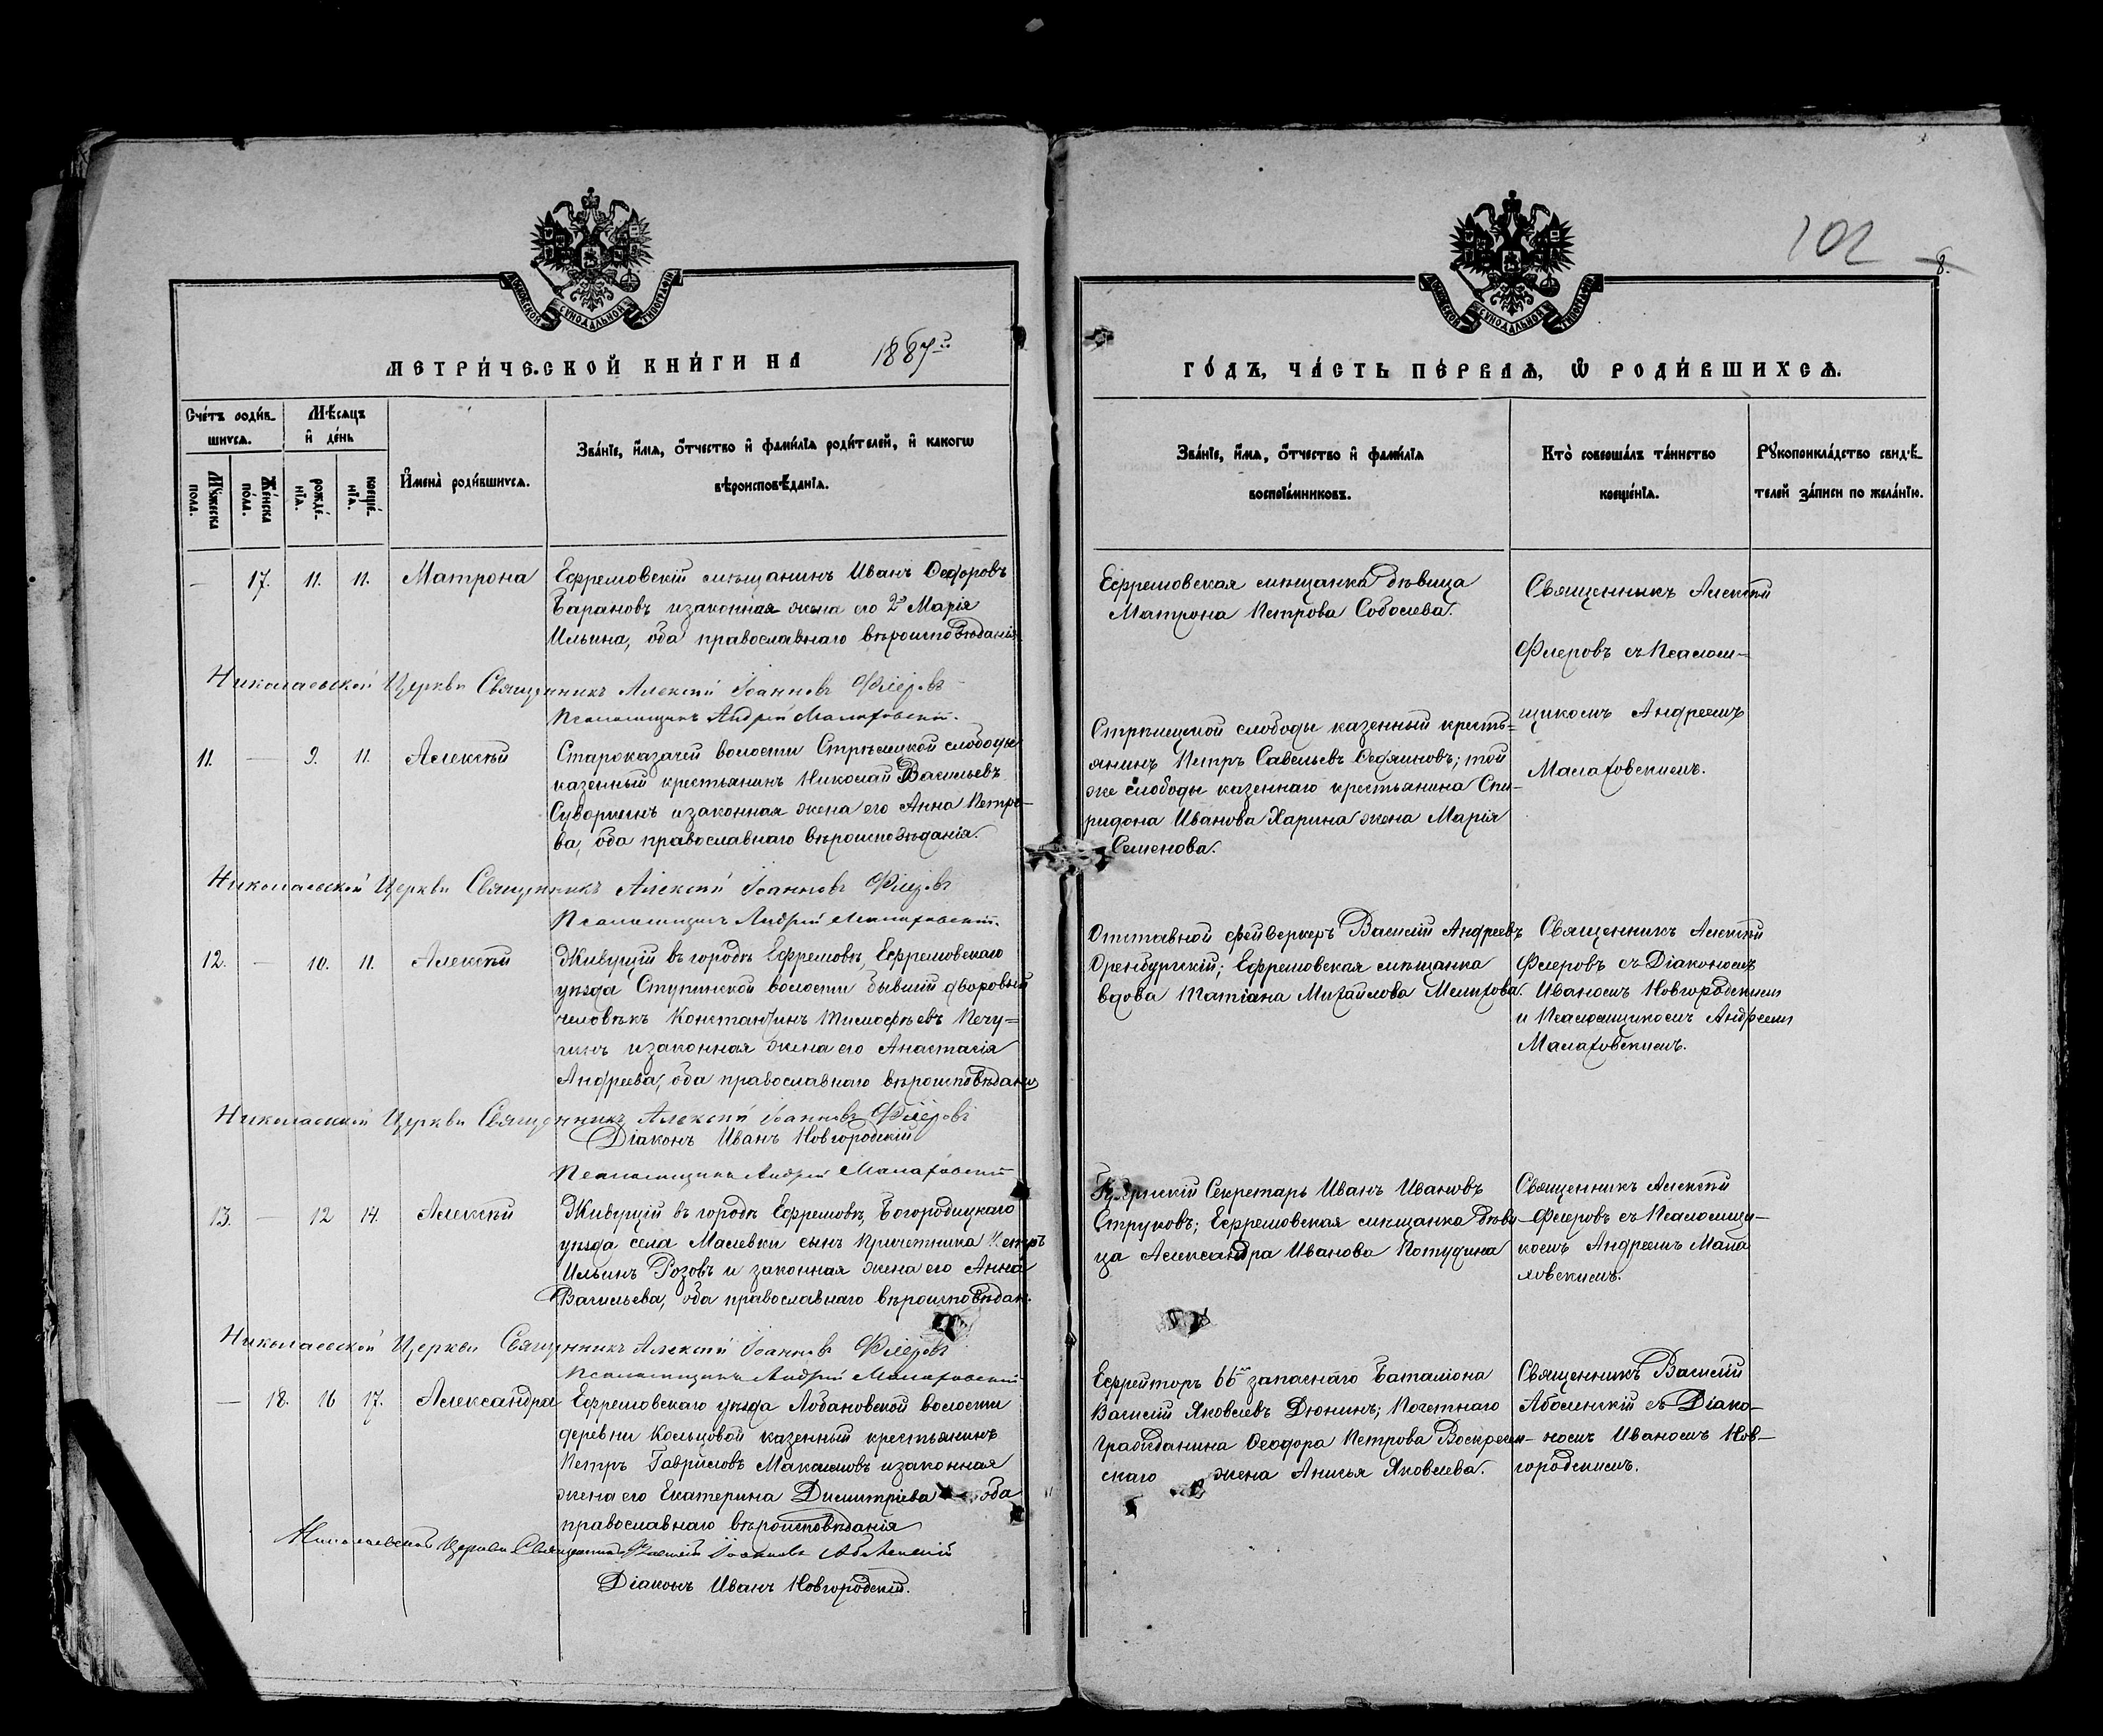 102
8.
МОСКОВСКОЙ СѴНОДАЛЬНОЙ ТИПОГРАФІИ
МОСКОВСКОЙ СѴНОДАЛЬНОЙ ТИПОГРАФІИ
МЕТРИ́ЧЕСКОЙ КНИ́ГИ НА 1887й
ГО́ДЪ, ЧА́СТЬ ПЕ́РВАѦ, Ѡ҆ РОДИ́ВШИХСѦ.
Сче́тъ роди́в-
шихсѧ.
Мѣ́сѧцъ
и҆ де́нь
Мꙋ́жеска
по́ла.
Же́нска
по́ла.
рожде́-
нїѧ.
креще́-
нїѧ.
И҆мена̀ роди́вшихсѧ.
Зва́нїе, и҆́мѧ, ѻ҆́тчество и҆ фами́лїѧ роди́телей, и҆ како́гѡ
вѣроисповѣ́данїѧ.
Зва́нїе, и҆́мѧ, ѻ҆́тчество и҆ фами́лїѧ
воспрїе́мниковъ.
Кто̀ соверша́лъ та́инство
креще́нїѧ.
Рꙋкоприкла́дство свидѣ́-
телей за́писи по жела́нїю.
— 17. 11. 11. Матрона
Ефремовскій мѣщанинъ Иванъ Ѳедоровъ
Барановъ и законная жена его 2я Марія
Ильина, оба православнаго вѣроисповѣданія
Ефремовская мѣщанка дѣвица
Матрона Петрова Соболева.
Священникъ Алексѣй
Флеровъ съ Псалом-
щикомъ Андреемъ
Малаховскимъ.
Николаевской Церкви Священникъ Алексій Іоанновъ Флёровъ
Псаломщикъ Андрей Малаховскій.
11. — 9. 11. Алексѣй
Староказачей волости Стрѣлецкой слободы
казенный крестьянинъ Николай Васильевъ
Суворкинъ и законная жена его Анна Петро-
ва, оба православнаго вѣроисповѣданія.
Стрѣлецкой слободы казенный кресть=
янинъ Петръ Савельевъ; той
же слободы казеннаго крестьянина Спи-
ридона Иванова Харина жена Марія
Семенова.
Николаевской Церкви Священникъ Алексій Іоанновъ Флёровъ
Псаломщикъ Андрей Малаховскій.
12. — 10. 11. Алексѣй
Живущій въ городѣ Ефремовѣ, Ефремовскаго
уѣзда Ступинской волости бывшій дворовый
человѣкъ Константинъ Тимофѣевъ Печу=
гинъ и законная жена его Анастасія
Андреева, оба православнаго вѣроисповѣданія
Отставной фейверкеръ Василій Андреевъ
Оренбургскій; Ефремовская мѣщанка
вдова Татіана Михайлова Мелихова.
Священникъ Алексѣй
Флеровъ съ Діакономъ
Иваномъ Новгородскимъ
и Псаломщикомъ Андреемъ
Малаховскимъ.
Николаевской Церкви Священникъ Алексій Іоанновъ Флёровъ
Діаконъ Иванъ Новгородскій
Псаломщикъ Андрей Малаховскій
13. — 12 14. Алексѣй
Живущій въ городѣ Ефремовѣ, Богородицкаго
уѣзда села Малевки сынъ причетника Петръ
Ильинъ Розовъ и законная жена его Анна
Васильева, оба православнаго вѣроисповѣдан.
Губернскій Секретарь Иванъ Ивановъ
Струковъ; Ефремовская мѣщанка дѣви-
ца Александра Иванова Потудина
Священникъ Алексѣй
Флеровъ съ Псаломщи-
комъ Андреемъ Мала
ховскимъ.
Николаевской Церкви Священникъ Алексій Іоанновъ Флёровъ
Псаломщикъ Андрей Малаховскій
— 18. 16 17. Александра
Ефремовскаго уѣзда Лобановской волости
деревни Кольцовой казенный крестьянинъ
Петръ Гавриловъ Максимовъ и законная
жена его Екатерина Димитріева оба
православнаго вѣроисповѣданія
Ефрейторъ 66го запаснаго баталіона
Василій Яковлевъ Дюнинъ; Почетнаго
гражданина Ѳеодора Петрова Воскресен-
скаго жена Анисья Яковлева.
Священникъ Василій
Аболенскій съ Діако-
номъ Иваномъ Нов-
городскимъ.
Николаевской Церкви Священникъ Василій Іоанновъ Аболенскій
Діаконъ Иванъ Новгородскій.